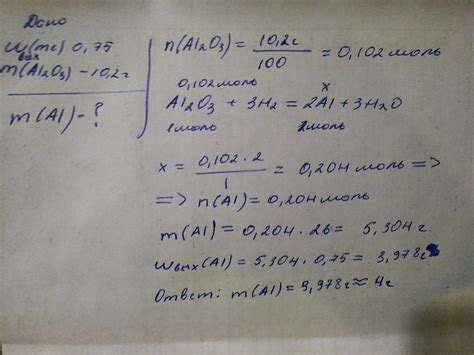 Дано
W(mc) 0,75
вых
m(Al₂O₃) - 10,2г
m(Al) - ?
n(Al₂O₃) = 10,2г / 100 = 0,102 моль
0,102 моль x
Al₂O₃ + 3H₂ = 2Al + 3H₂O
1 моль 2 моль
x = 0,102 · 2 / 1 = 0,204 моль =>
=> n(Al) = 0,204 моль
m(Al) = 0,204 · 26 = 5,304 г
Wвых(Al) = 5,304 · 0,75 = 3,978г
Ответ: m(Al) = 3,978г ≈ 4г